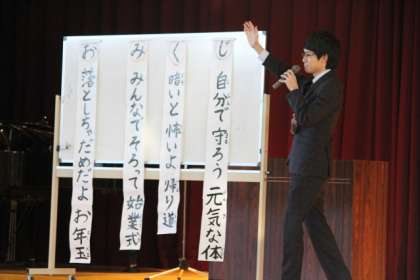 じ 自分で守ろう 元気な体
く 暗いと怖いよ帰り道
み みんなでそろって始業式
お 落としちゃだめだよ お年玉